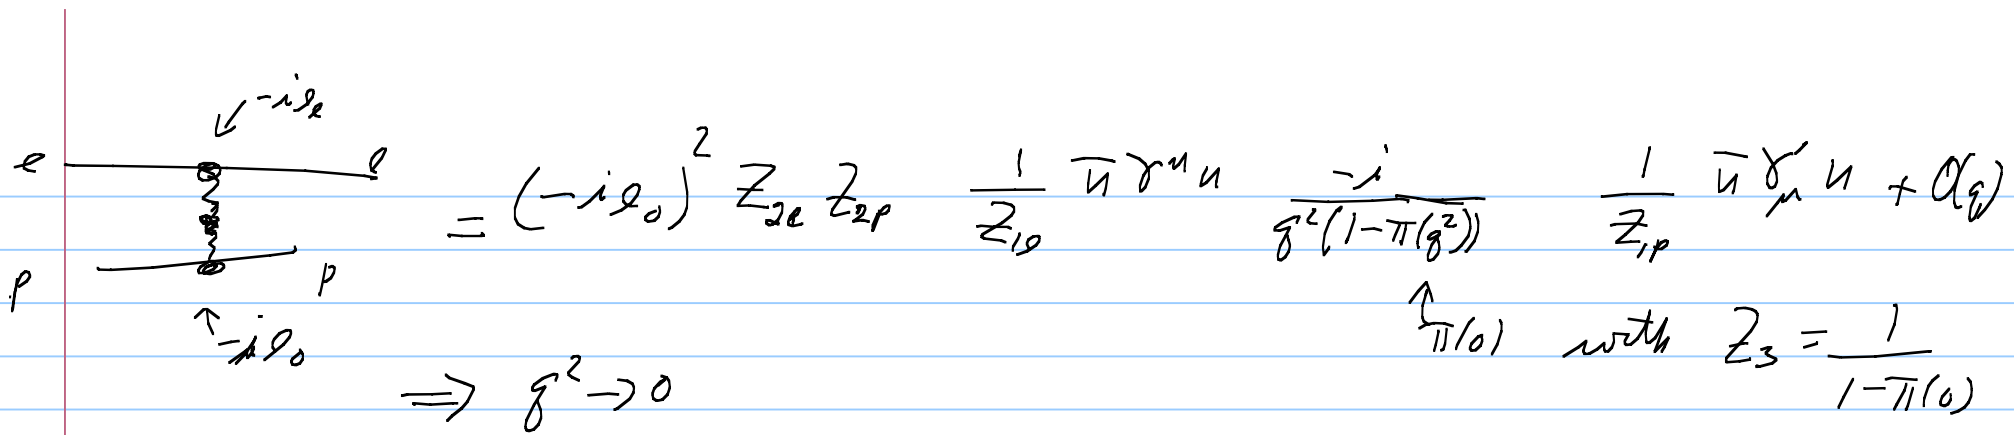 -ie_e
e e = (-ie_0)^2 Z_{2e} Z_{2p} \frac{1}{Z_{1e}} \bar{u} γ^μ u \frac{-i}{q^2(1-π(q^2))} \frac{1}{Z_{1p}} \bar{u} γ_μ u + O(q)
p p
-ie_0 π(0) with Z_3 = \frac{1}{1-π(0)}
⟹ q^2 → 0